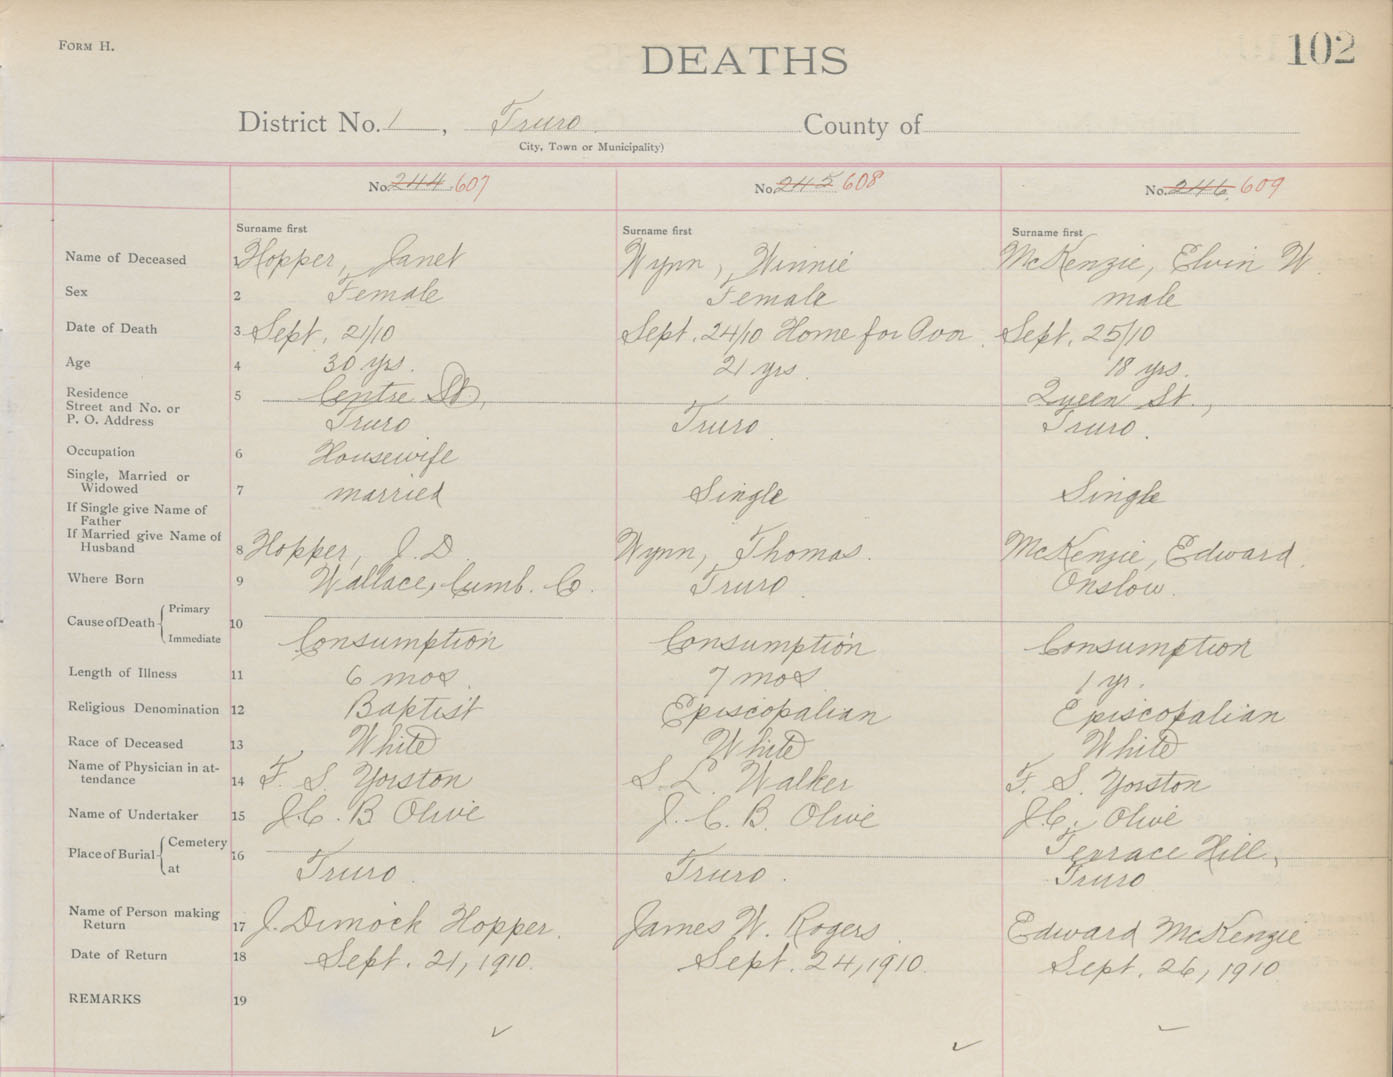 FORM H.
DEATHS
102
District No. 1, Truro County of
City, Town or Municipality)
No. 244 607 No. 245 608 No. 246 609
Surname first Surname first Surname first
Name of Deceased 1 Hopper, Janet Wynn, Winnie McKenzie, Elvin W.
Sex 2 Female Female male
Date of Death 3 Sept. 21/10 Sept. 24/10 Home for Poor. Sept. 25/10
Age 4 30 yrs. 21 yrs. 18 yrs.
Residence 5 Centre St., Queen St.,
Street and No. or
P. O. Address Truro Truro. Truro.
Occupation 6 Housewife
Single, Married or
Widowed 7 married Single Single
If Single give Name of
Father
If Married give Name of
Husband 8 Hopper, J. D. Wynn, Thomas. McKenzie, Edward.
Where Born 9 Wallace, Cumb. Co. Truro. Onslow.
Cause of Death Primary 10
Immediate Consumption Consumption Consumption
Length of Illness 11 6 mos. 7 mos 1 yr.
Religious Denomination 12 Baptist Episcopalian Episcopalian
Race of Deceased 13 White White White
Name of Physician in at-
tendance 14 F. S. Yorston S. L. Walker F. S. Yorston
Name of Undertaker 15 J. C. B. Olive J. C. B. Olive J. C. Olive
Place of Burial Cemetery 16 Terrace Hill,
at Truro. Truro. Truro
Name of Person making
Return 17 J. Dimock Hopper. James W. Rogers. Edward McKenzie
Date of Return 18 Sept. 21, 1910. Sept. 24, 1910. Sept. 26, 1910
REMARKS 19